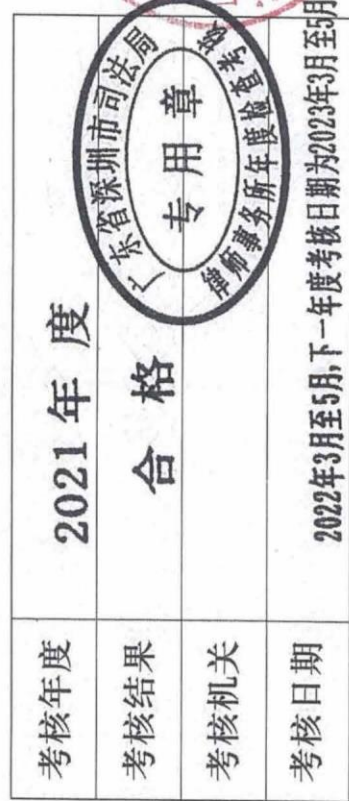 考核年度
2021年度
考核结果
合格
考核机关
广东省深圳市司法局
专用章
律师事务所年度检查考核
考核日期
2022年3月至5月,下一年度考核日期为2023年3月至5月